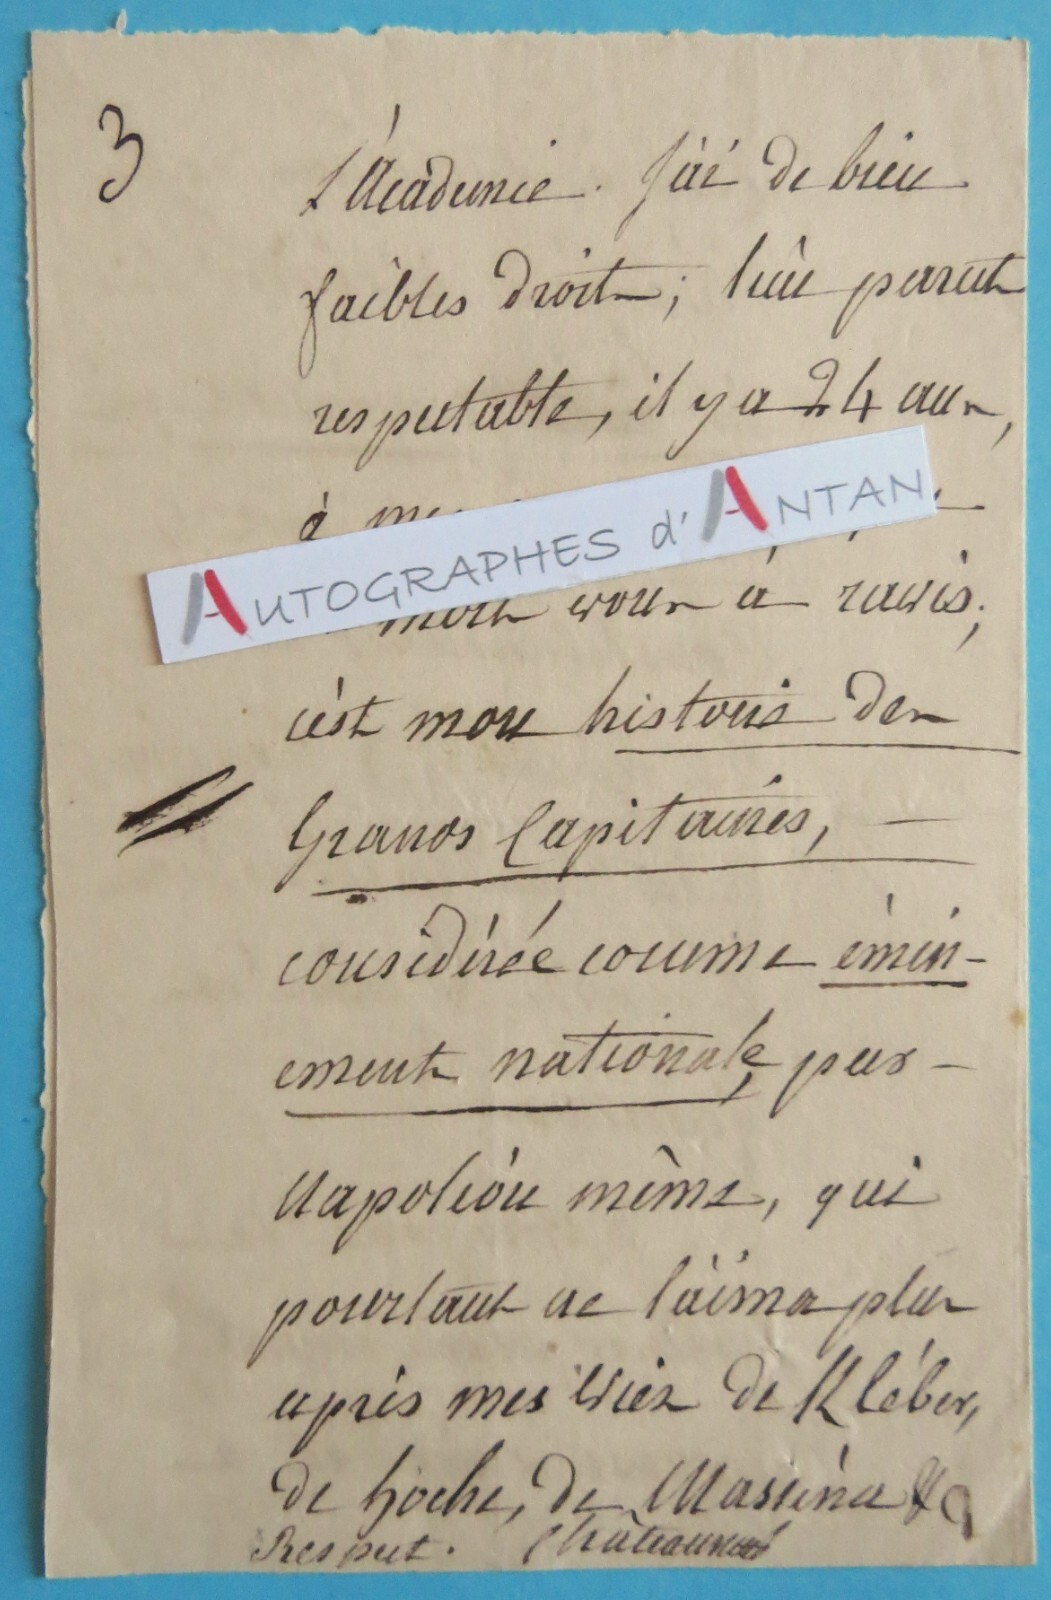 3
L'Académie. J'ai de bien
faibles droits; l'un parut
respectable, il y a 24 ans,
à
AUTOGRAPHES d'ANTAN
à
c'est mon histoire des
Grands Capitaines,
considérée comme émin-
emment nationale, par
Napoléon même, qui
pourtant ne l'aima plus
après mes vies de Kléber,
de hoche, de Masséna &a
Respect. Châteauneuf